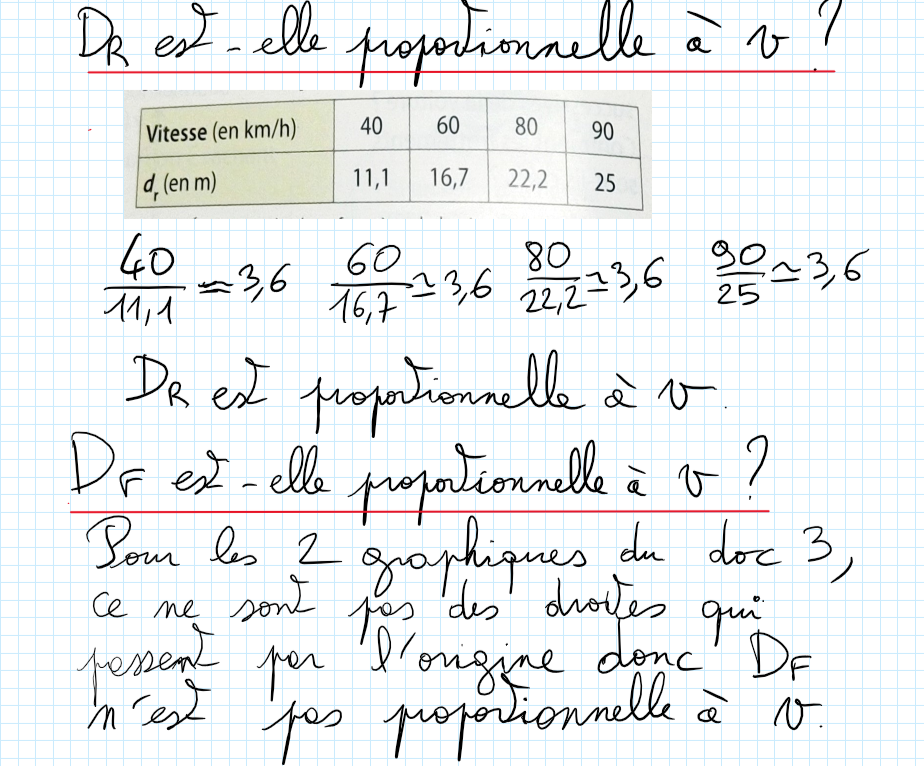 DR est-elle proportionnelle à v ?
Vitesse (en km/h) 40 60 80 90
dr (en m) 11,1 16,7 22,2 25
40/11,1 ≃ 3,6 60/16,7 ≃ 3,6 80/22,2 ≃ 3,6 90/25 ≃ 3,6
DR est proportionnelle à v.
DF est-elle proportionnelle à v ?
Pour les 2 graphiques du doc 3,
ce ne sont pas des droites qui
passent par l'origine donc DF
n'est pas proportionnelle à v.